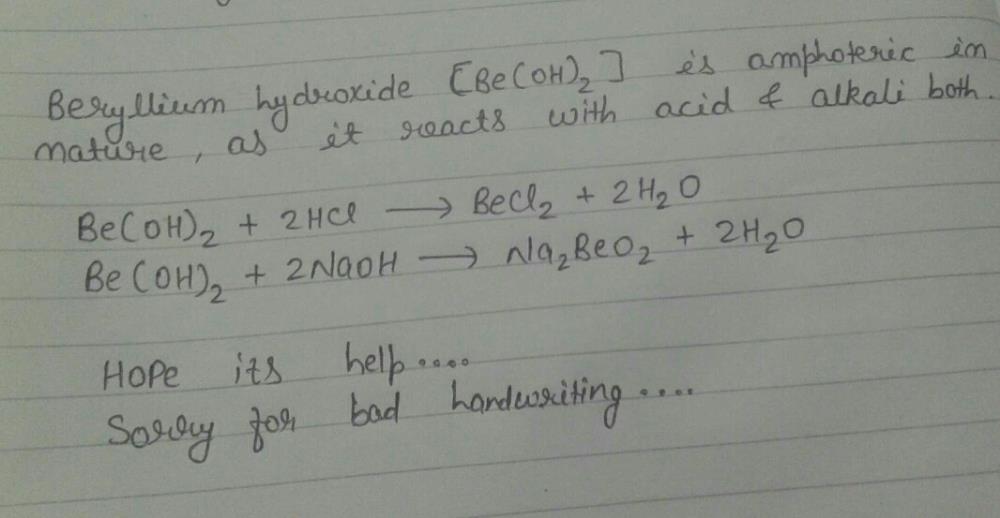 Beryllium hydroxide [Be(OH)₂] is amphoteric in
nature, as it reacts with acid & alkali both.
Be(OH)₂ + 2HCl ⟶ BeCl₂ + 2H₂O
Be(OH)₂ + 2NaOH ⟶ Na₂BeO₂ + 2H₂O
Hope its help....
Sorry for bad handwriting....